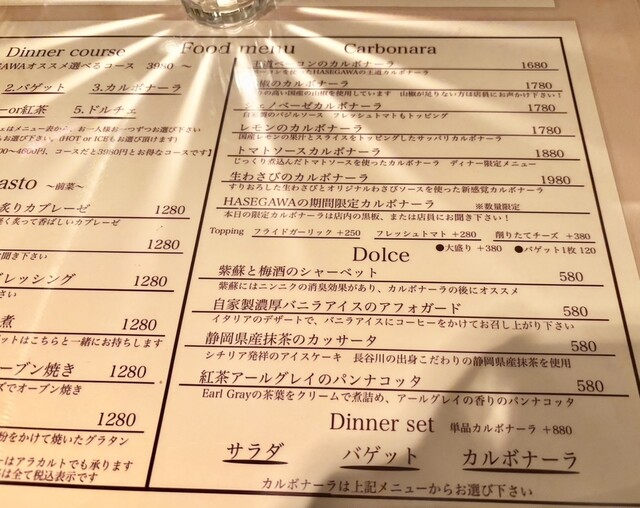 Dinner course
GAWAオススメ選べるコース 3980 ～
2.バゲット 3.カルボナーラ
ーor紅茶 5.ドルチェ
はメニュー表から、お一人様お一つずつお選び下さい
お選び下さい。(HOT or ICEもお選び頂けます)
コースだと3980円とお得なコースです】
asto ～前菜～
炙りカプレーゼ 1280
く炙って香ばしいカプレーゼ
1280
お聞き下さい
レッシング 1280
煮 1280
ットはこちらと一緒にお持ちします
ーブン焼き 1280
ズでオーブン焼き
1280
粉をかけて焼いたグラタン
ーはアラカルトでも承ります
は全て税込表示です
Food menu
Carbonara
ベーコンのカルボナーラ 1680
使ったHASEGAWAの王道カルボナーラ
椒のカルボナーラ 1780
の高い国産の山椒を使用しています 山椒が足りない方は店員にお声かけ下さい!
ジェノベーゼカルボナーラ 1780
自家製のバジルソース フレッシュトマトもトッピング
レモンのカルボナーラ 1780
国産レモンの果汁とスライスをトッピングしたサッパリカルボナーラ
トマトソースカルボナーラ 1880
じっくり煮込んだトマトソースを使ったカルボナーラ ディナー限定メニュー
生わさびのカルボナーラ 1980
すりおろした生わさびとオリジナルわさびソースを使った新感覚カルボナーラ
HASEGAWAの期間限定カルボナーラ ※数量限定
本日の限定カルボナーラは店内の黒板、または店員にお聞き下さい!
Topping フライドガーリック +250 フレッシュトマト +280 削りたてチーズ +380
●大盛り +380 ●バゲット1枚 120
Dolce
紫蘇と梅酒のシャーベット 580
紫蘇にはニンニクの消臭効果があり、カルボナーラの後にオススメ
自家製濃厚バニラアイスのアフォガード 580
イタリアのデザートで、バニラアイスにコーヒーをかけてお召し上がり下さい
静岡県産抹茶のカッサータ 580
シチリア発祥のアイスケーキ 長谷川の出身こだわりの静岡県産抹茶を使用
紅茶アールグレイのパンナコッタ 580
Earl Grayの茶葉をクリームで煮詰め、アールグレイの香りのパンナコッタ
Dinner set 単品カルボナーラ +880
サラダ バゲット カルボナーラ
カルボナーラは上記メニューからお選び下さい